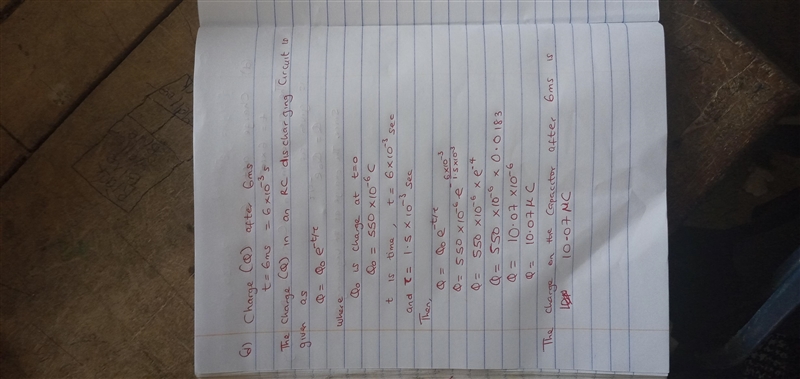 d) Charge (Q) after 6ms
t = 6ms = 6×10⁻³s
The charge (Q) in an RC discharging circuit is
given as
Q = Q₀ e^(-t/τ)
where
Q₀ is charge at t=0
Q₀ = 550 ×10⁻⁶ C
t is time, t = 6×10⁻³ sec
and τ = 1.5 ×10⁻³ sec
Then,
Q = Q₀ e^(-t/τ)
Q = 550 ×10⁻⁶ e^(-6×10⁻³/1.5×10⁻³)
Q = 550 ×10⁻⁶ × e⁻⁴
Q = 550 ×10⁻⁶ × 0.0183
Q = 10.07 ×10⁻⁶
Q = 10.07 μC
The charge on the capacitor after 6ms is
10.07 μC